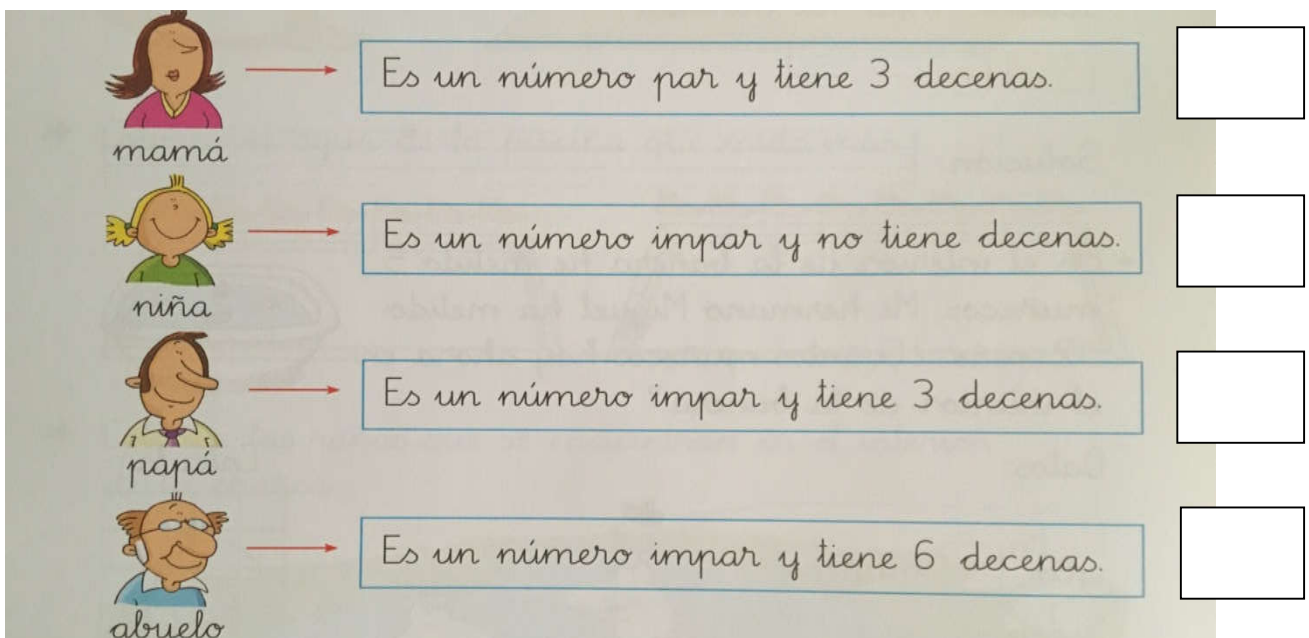 Es un número par y tiene 3 decenas.
mamá
Es un número impar y no tiene decenas.
niña
Es un número impar y tiene 3 decenas.
papá
Es un número impar y tiene 6 decenas.
abuelo